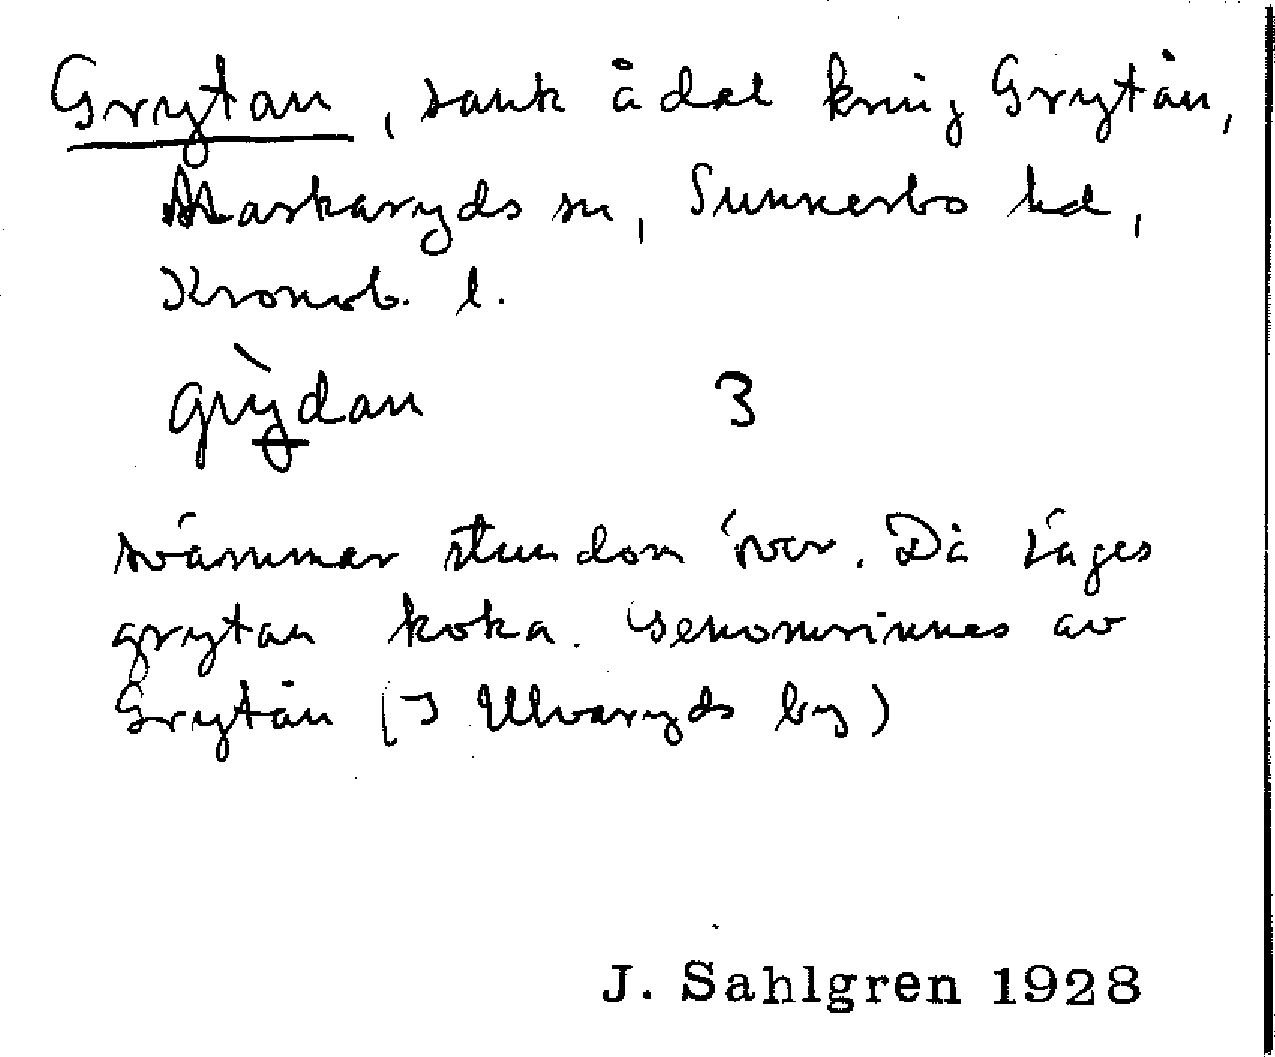 Grytan, sank ådal kring Grytån,
Markaryds sn, Sunnerbo hd,
Kronob. l.
grỳdan 3
svämmar stundom över. Då säges
grytan koka. Genomrinnes av
Grytån (I Ulvaryds by)
J. Sahlgren 1928